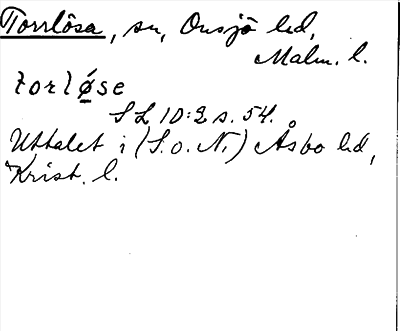 Torrlösa, sn, Onsjö hd,
Malm. l.
torlǿse
SL 10:2 s. 54.
Uttalet i (S. o. N.) Åsbo hd,
Krist. l.